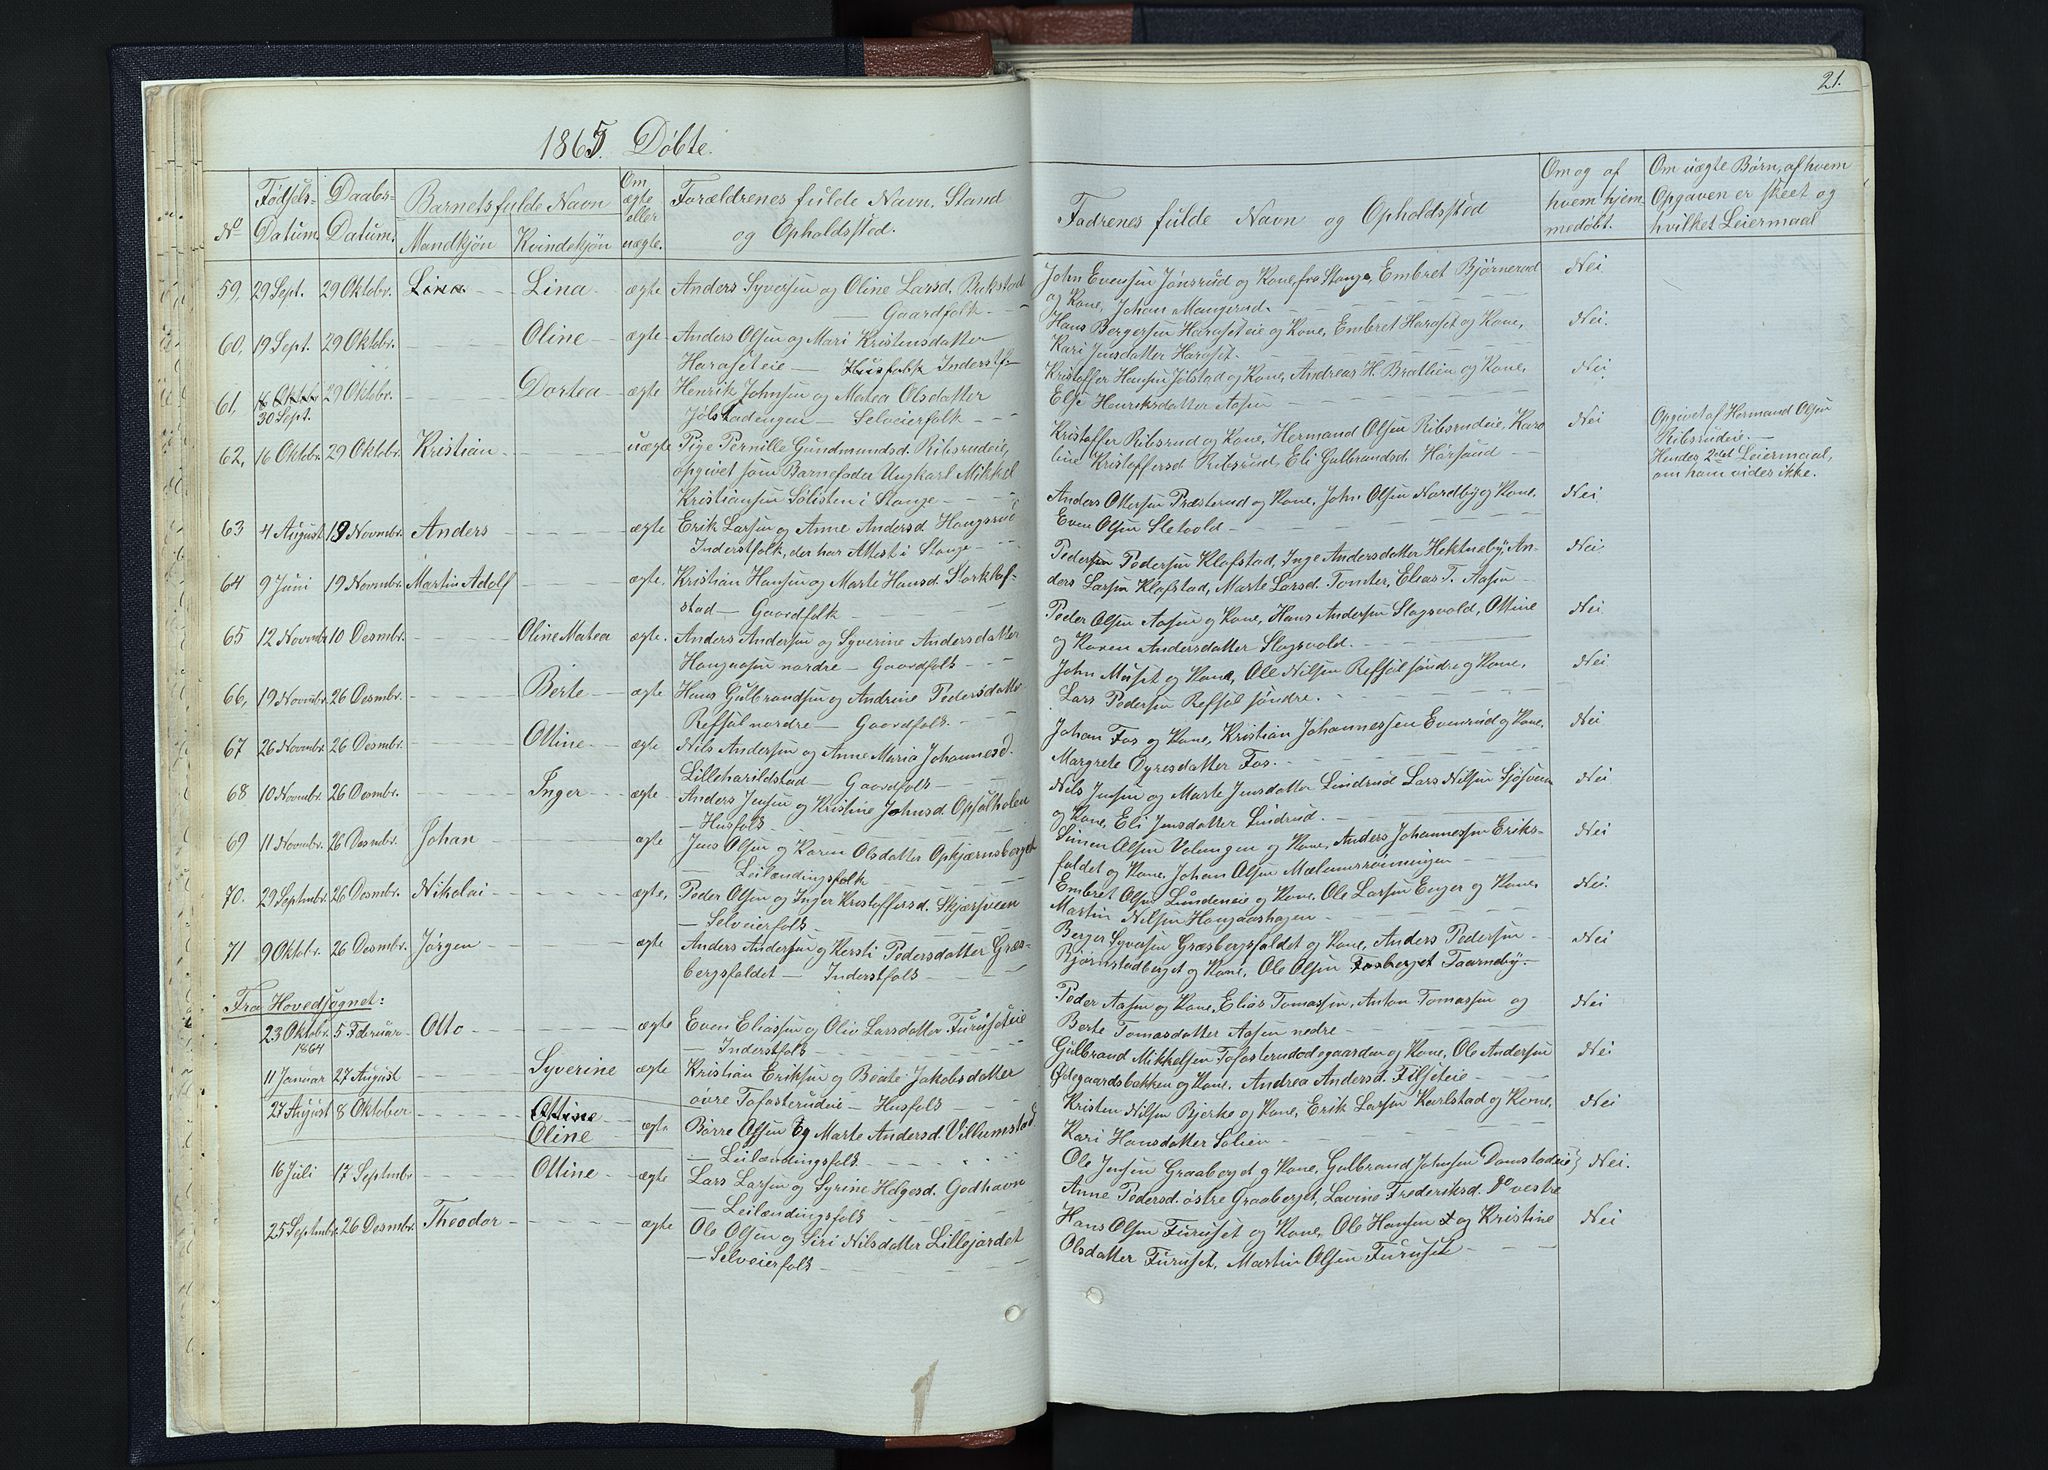 21.
1865. Døbte.
No
Fødsels-
Datum.
Daabs-
Datum.
Barnets fulde Navn
Mandkjøn
Kvindekjøn
Om
ægte
eller
uægte.
Forældrenes fulde Navn, Stand
og Opholdssted.
Fadrenes fulde Navn og Opholdssted
Om og af
hvem hjem-
medøbt.
Om uægte Børn, af hvem
Opgaven er skeet og
hvilket Leiermaal
59, 29 Sept. 29 Oktobr. Lina Lina ægte Anders Syversen og Oline Larsd. Bukstad
Gaardfolk
John Evensen Jønsrud og Kone, fra Stange, Embret Bjørnerud Nei
og Kone, Johan Mangerud.
60, 19 Sept. 29 Oktobr. Oline ægte Anders Olsen og Mari Kristensdatter
Haraset eie — Husfolk Inderstf.
Hans Bergersen Haraseteie og Kone, Embret Haraset og Kone, Nei.
Kari Jensdatter Haraset.
61, 16 Oktobr 29 Oktobr. Dortea ægte Henrik Johnsen og Matea Olsdatter
30 Sept. Jølstadengen — Selveierfolk
Kristoffer Hansen Jølstad og Kone, Andreas H. Brattlien og Kone, Nei
Else Henriksdatter Aasen
62, 16 Oktobr. 29 Oktobr. Kristian uægte Pige Pernille Gundmundsd. Ribsrudeie,
opgivet som Barnefader Ungkarl Mikkel
Kristiansen Sølisten i Stange
Kristoffer Ribsrud og Kone, Hermand Olsen Ribsrudeie, Karo Nei
line Kristoffersd. Ribsrud, Eli Gulbrandsd. Hørsand
Opgivet af Hermand Olsen
Ribsrudeie.
Hendes 2det Leiermaal,
om ham vides ikke.
63 4 August 19 Novmbr. Anders ægte Erik Larsen og Anne Andersd. Haugsrud
Inderstfolk, der har Attest i Stange
Anders Ottersen Præsterud og Kone, John Olsen Nordby og Kone, Nei
Even Olsen Sletvold
64 9 Juni 19 Novmbr. Martin Adolf ægte. Kristian Hansen og Marte Hansd. Storklof-
stad — Gaardfolk
Peder Pedersen Klofstad, Inge Andersdatter Hektneby, An- Nei
ders Larsen Klofstad, Marte Larsd. Tomter, Elias T. Aasen
65 12 Novmbr 10 Desmbr. Oline Matea ægte. Anders Andersen og Syverine Andersdatter
Haugaasen nordre — Gaardfolk
Peder Olsen Aasen og Kone, Hans Andersen Slagsvold, Ottine Nei
og Karen Andersdatter Slagsvold.
66, 19 Novmbr. 26 Desmbr. Berte ægte Hans Gulbrandsen og Andrine Pedersdatter
Refsal nordre — Gaardfolk
John Musset og Kone, Ole Nilsen Refsal søndre og Kone, Nei
Lars Pedersen Refsal søndre.
67 26 Novmbr. 26 Desmbr. Ottine ægte Nils Andersen og Anne Maria Johannesd.
Lilleharildstad — Gaardfolk
Johan Fos og Kone, Kristian Johannessen Evenrud og Kone, Nei
Margrete Dyresdatter Fos.
68 10 Novmbr. 26 Desmbr. Inger ægte Anders Jensen og Kristine Johnsd. Opsalholen
— Husfolk
Nils Jensen og Marte Jensdatter Lindrud Lars Nilsen Sjøsveen Nei
og Kone, Eli Jensdatter Lindrud.
69 11 Novmbr. 26 Desmbr Johan ægte Jens Olsen og Karen Olsdatter Opkjærnsberget
— Leilændingsfolk
Simen Olsen Volungen og Kone, Anders Johannessen Eriks- Nei
faldet og Kone. Johan Olsen Mælumsrønningen
70. 29 Septmbr. 26 Desmbr. Nikolai ægte, Peder Olsen og Inger Kristoffersd. Skjærsveen
— Selveierfolk
Embret Olsen Lundeneie og Kone, Ole Larsen Enger og Kone, Nei.
Martin Nilsen Haugaashagen
71 9 Oktobr. 26 Desmbr. Jørgen ægte Anders Andersen og Kersti Pedersdatter Græs-
bergsfaldet — Inderstfolk
Berger Syversen Græsbergsfaldet og Kone, Anders Pedersen Nei
Bjørnstadberget og Kone, Ole Olsen Fosberget Taarneby.
Fra Hovedsognet:
23 Oktobr. 5 Februar Otto ægte Even Eliassen og Olia Larsdatter Furuseteie
1864 — Inderstfolk
Peder Aasen og Kone, Elias Tomassen, Anton Tomassen og Nei
Berte Tomasdatter Aasen nedre
11 Januar 27 August Syverine ægte Kristian Eriksen og Beate Jakobsdatter
øvre Tofasterudeie — Husfolk
Gulbrand Mikkelsen Tofasterudødegaarden og Kone, Ole Andersen Nei
Ødegaardsbakken og Kone. Andrea Andersd. Filseteie
27 August 8 Oktober Ottine ægte Børre Olsen og Marte Andersd. Vilhumstad
Oline — Leilændingsfolk
Kristen Nilsen Bjerke og Kone, Erik Larsen Karlstad og Kone, Nei
Kari Hansdatter Solien
16 Juli 17 Septmbr Ottine ægte Lars Larsen og Syrine Helgesd. Godhavn
— Leilændingsfolk
Ole Jensen Graaberget og Kone, Gulbrand Johnsen Damstadeie Nei.
Anne Pedersd. østre Graaberget, Lavine Frederiksd. Do vestre
25 Septmbr. 26 Desmbr. Theodor ægte Ole Olsen og Siri Nilsdatter Lillejordet
— Selveierfolk
Hans Olsen Furuset og Kone, Ole Hansen og Kristine Nei
Olsdatter Furuset, Martin Olsen Furuset